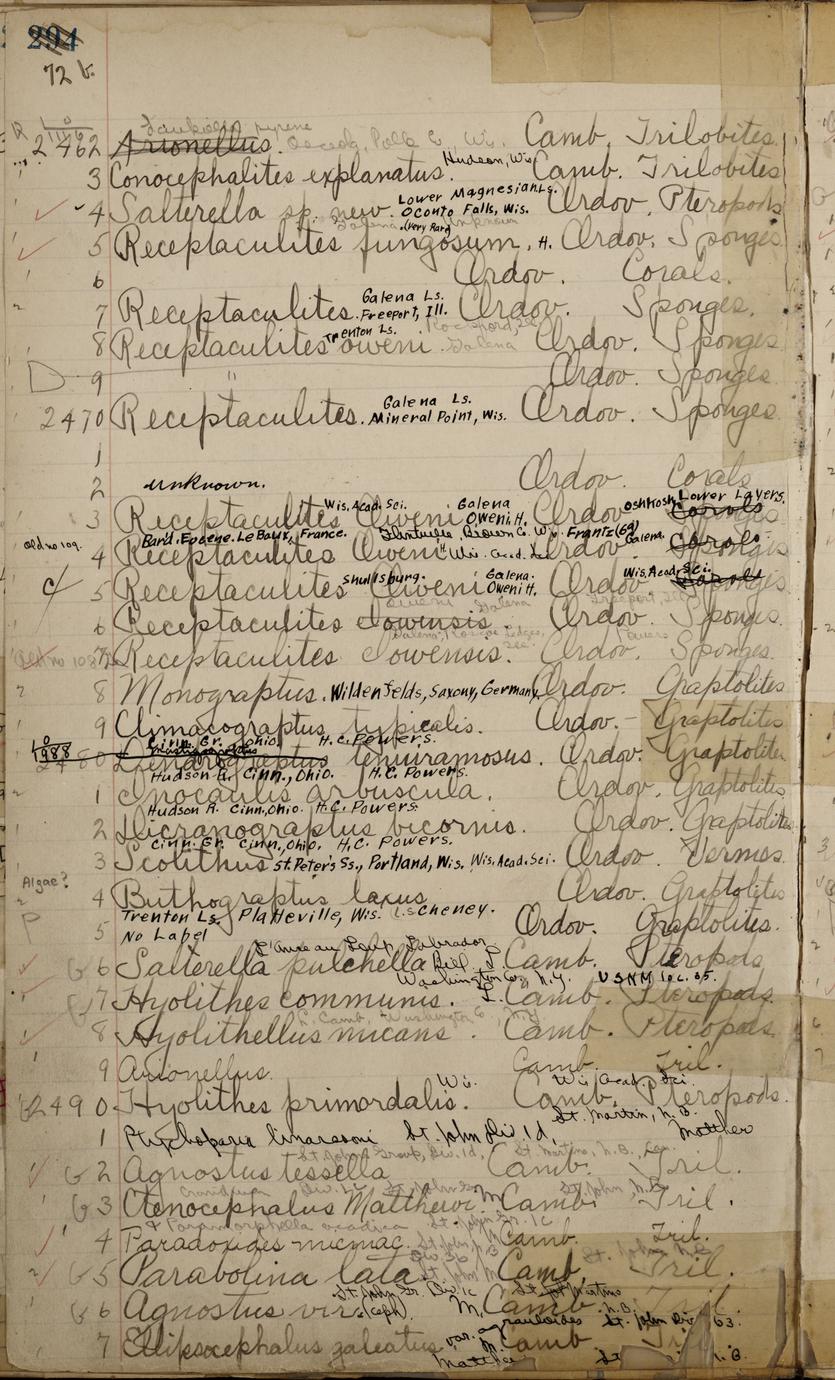 294
72 b.
Saukiella pyrene
2462 Arionellus. Osceola, Polk Co., Wis. Camb. Trilobites.
3 Conocephalites explanatus. Hudson, Wis. Camb. Trilobites.
4 Salterella sp. new. Lower Magnesian Ls. Oconto Falls, Wis. Ordov. Pteropods
Galena Unknown
5 Receptaculites fungosum, H. (Very Rare) Ordov. Sponges.
6 Ordov. Corals.
7 Receptaculites. Galena Ls. Freeport, Ill. Ordov. Sponges.
8 Receptaculites oweni Trenton Ls. Rockford, Ill. Galena Ordov. Sponges
9 " Ordov. Sponges.
2470 Receptaculites. Galena Ls. Mineral Point, Wis. Ordov. Sponges
1
2 unknown. Ordov. Corals
3 Receptaculites Oweni Wis. Acad. Sci. Galena Oweni H. Ordov. Oshkosh Lower Layers. Corals Sponges
Bard. Eugene. Le Baux, France. Brown Co. Frantz (69)
Old no 109. 4 Receptaculites Oweni " Wis. Acad. Sci. Ordov. Galena. Corals Sponges
5 Receptaculites Oweni Shullsburg. Galena. Oweni H. Ordov. Wis. Acad. Sci. Corals Sponges
Oweni Galena Freeport, Ill.
6 Receptaculites Iowensis. Ordov. Sponges.
Galena, Roscoe Ledges, Powers
Old no 108 7 Receptaculites Iowensis. Ordov. Sponges.
8 Monograptus. Wildenfelds, Saxony, Germany. Ordov. Graptolites
9 Climacograptus typicalis. Ordov. - Graptolites
Cinn. Gr. Ohio. H.C. Powers.
1988 2480 Dendrograptus tenuiramosus. Ordov. Graptolites
Hudson R. Cinn., Ohio. H.C. Powers.
1 Inocaulis arbuscula. Ordov. Graptolites
Hudson R. Cinn., Ohio. H.C. Powers.
2 Dicranograptus bicornis. Ordov. Graptolites
Cinn. Gr. Cinn., Ohio. H.C. Powers.
3 Scolithus St. Peter's Ss., Portland, Wis. Wis. Acad. Sci. Ordov. Vermes.
Algae? 4 Buthograptus laxus Ordov. Graptolites
Trenton Ls. Platteville, Wis. L.S. Cheney.
5 No Label Ordov. Graptolites.
L'Anse au Loup, Labrador
G 6 Salterella pulchella Bill. L. Camb. Pteropods
Washington Co., N.Y. USNM loc. 35.
G 7 Hyolithes communis. L. Camb. Pteropods.
L. Camb. Washington Co., N.Y.
8 Hyolithellus micans. Camb. Pteropods
9 Arionellus. Camb. Tril.
Wis. Wis. Acad. Sci.
G 2490 Hyolithes primordalis. Camb. Pteropods.
St. Martin, N.B.
1 Ptychoparia linarssoni St. John Div. 1d, Matthew
St. John Group, Div. 1d, St. Martins, N.B.
G 2 Agnostus tessella Camb. Tril.
Cranidium St. John N.B.
G 3 Ctenocephalus Matthewi M. Camb. Tril.
St. John Gr. 1c
4 Paradoxides micmac. Camb. Tril.
G 5 Parabolina lata Camb. Tril.
St. John Gr. Div. 1c St. Martins
G 6 Agnostus vir (ceph). M. Camb. N.B. Tril
var. agrauloides St. John Div.
7 Ellipsocephalus galeatus M. Camb Tril
Matthew St. N.B.